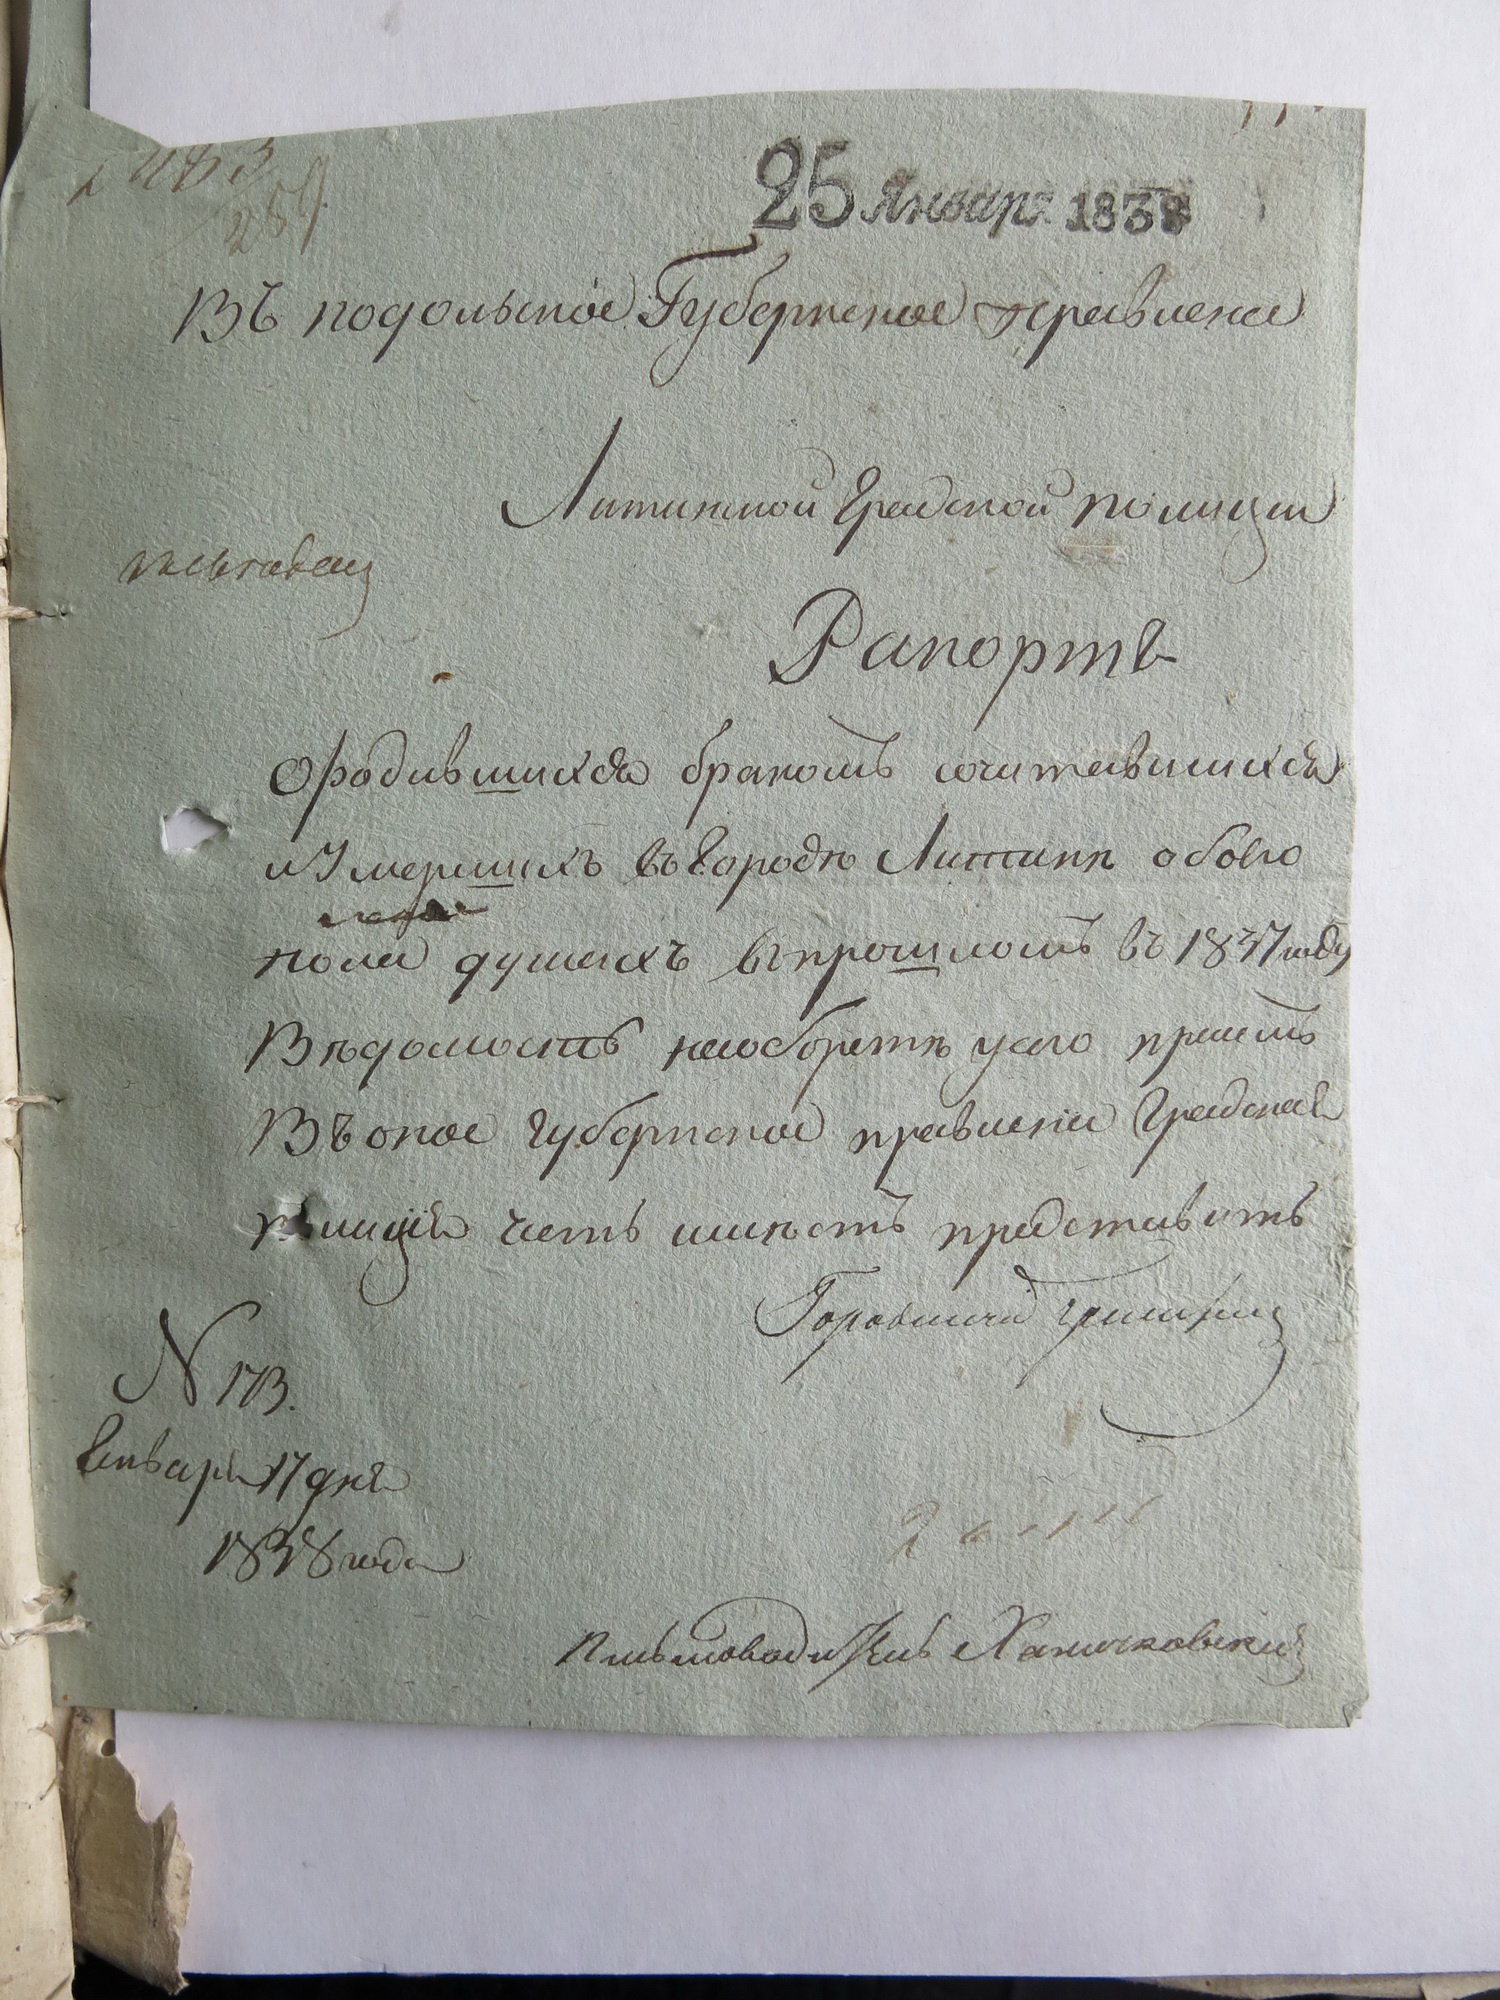 25 Январ. 1838
Въ подольское Губернское правление
Литинской Градской полиции
Рапортъ
О родившихся бракомъ сочитавшихся
и Умершихъ въ городѣ Литинѣ обоего
пола душахъ впрошломъ въ 1837 году
Вѣдомость наоборотѣ усего приемъ
Въ оное губернское правление Градская
полиция честь имѣетъ представить
Городничий
N 173.
Генваря 17 дня
1838 года
Письмоводитель Ханичковский